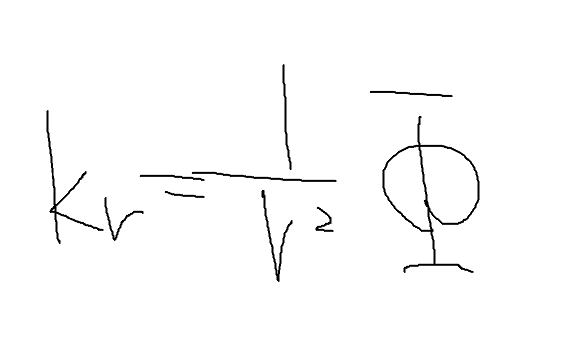 kᵣ = 1/r² Φ